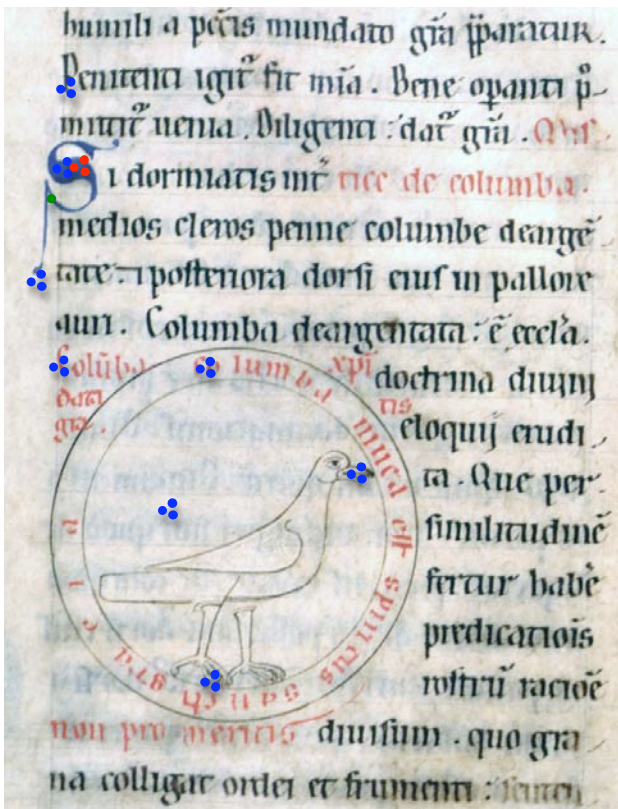 humili a pc̄cis mundato gr̄a p̄paratur.
Penitenti igit᷑ fit mīa. Bene operanti p̊-
mittit᷑ uenia. Diligenti: dat᷑ gr̄a. Mis
Si dormiatis int᷑ tice de columba.
medios cleros penne columbe dearge᷑
tate: ⁊ posteriora dorsi eius in pallore
auri. Columba deargentata: ē eccl̄a.
Colūba columba xp̄i doctrina diuini
data tis eloquij erudi
gr̄a. munda est ta. Que per
similitudinē
spiritus fertur habēe
predicatiōis
sancti gratia rostrū raciōe
non pro meritis diuisum. quo gra
na colligat ordei et frumenti: senten